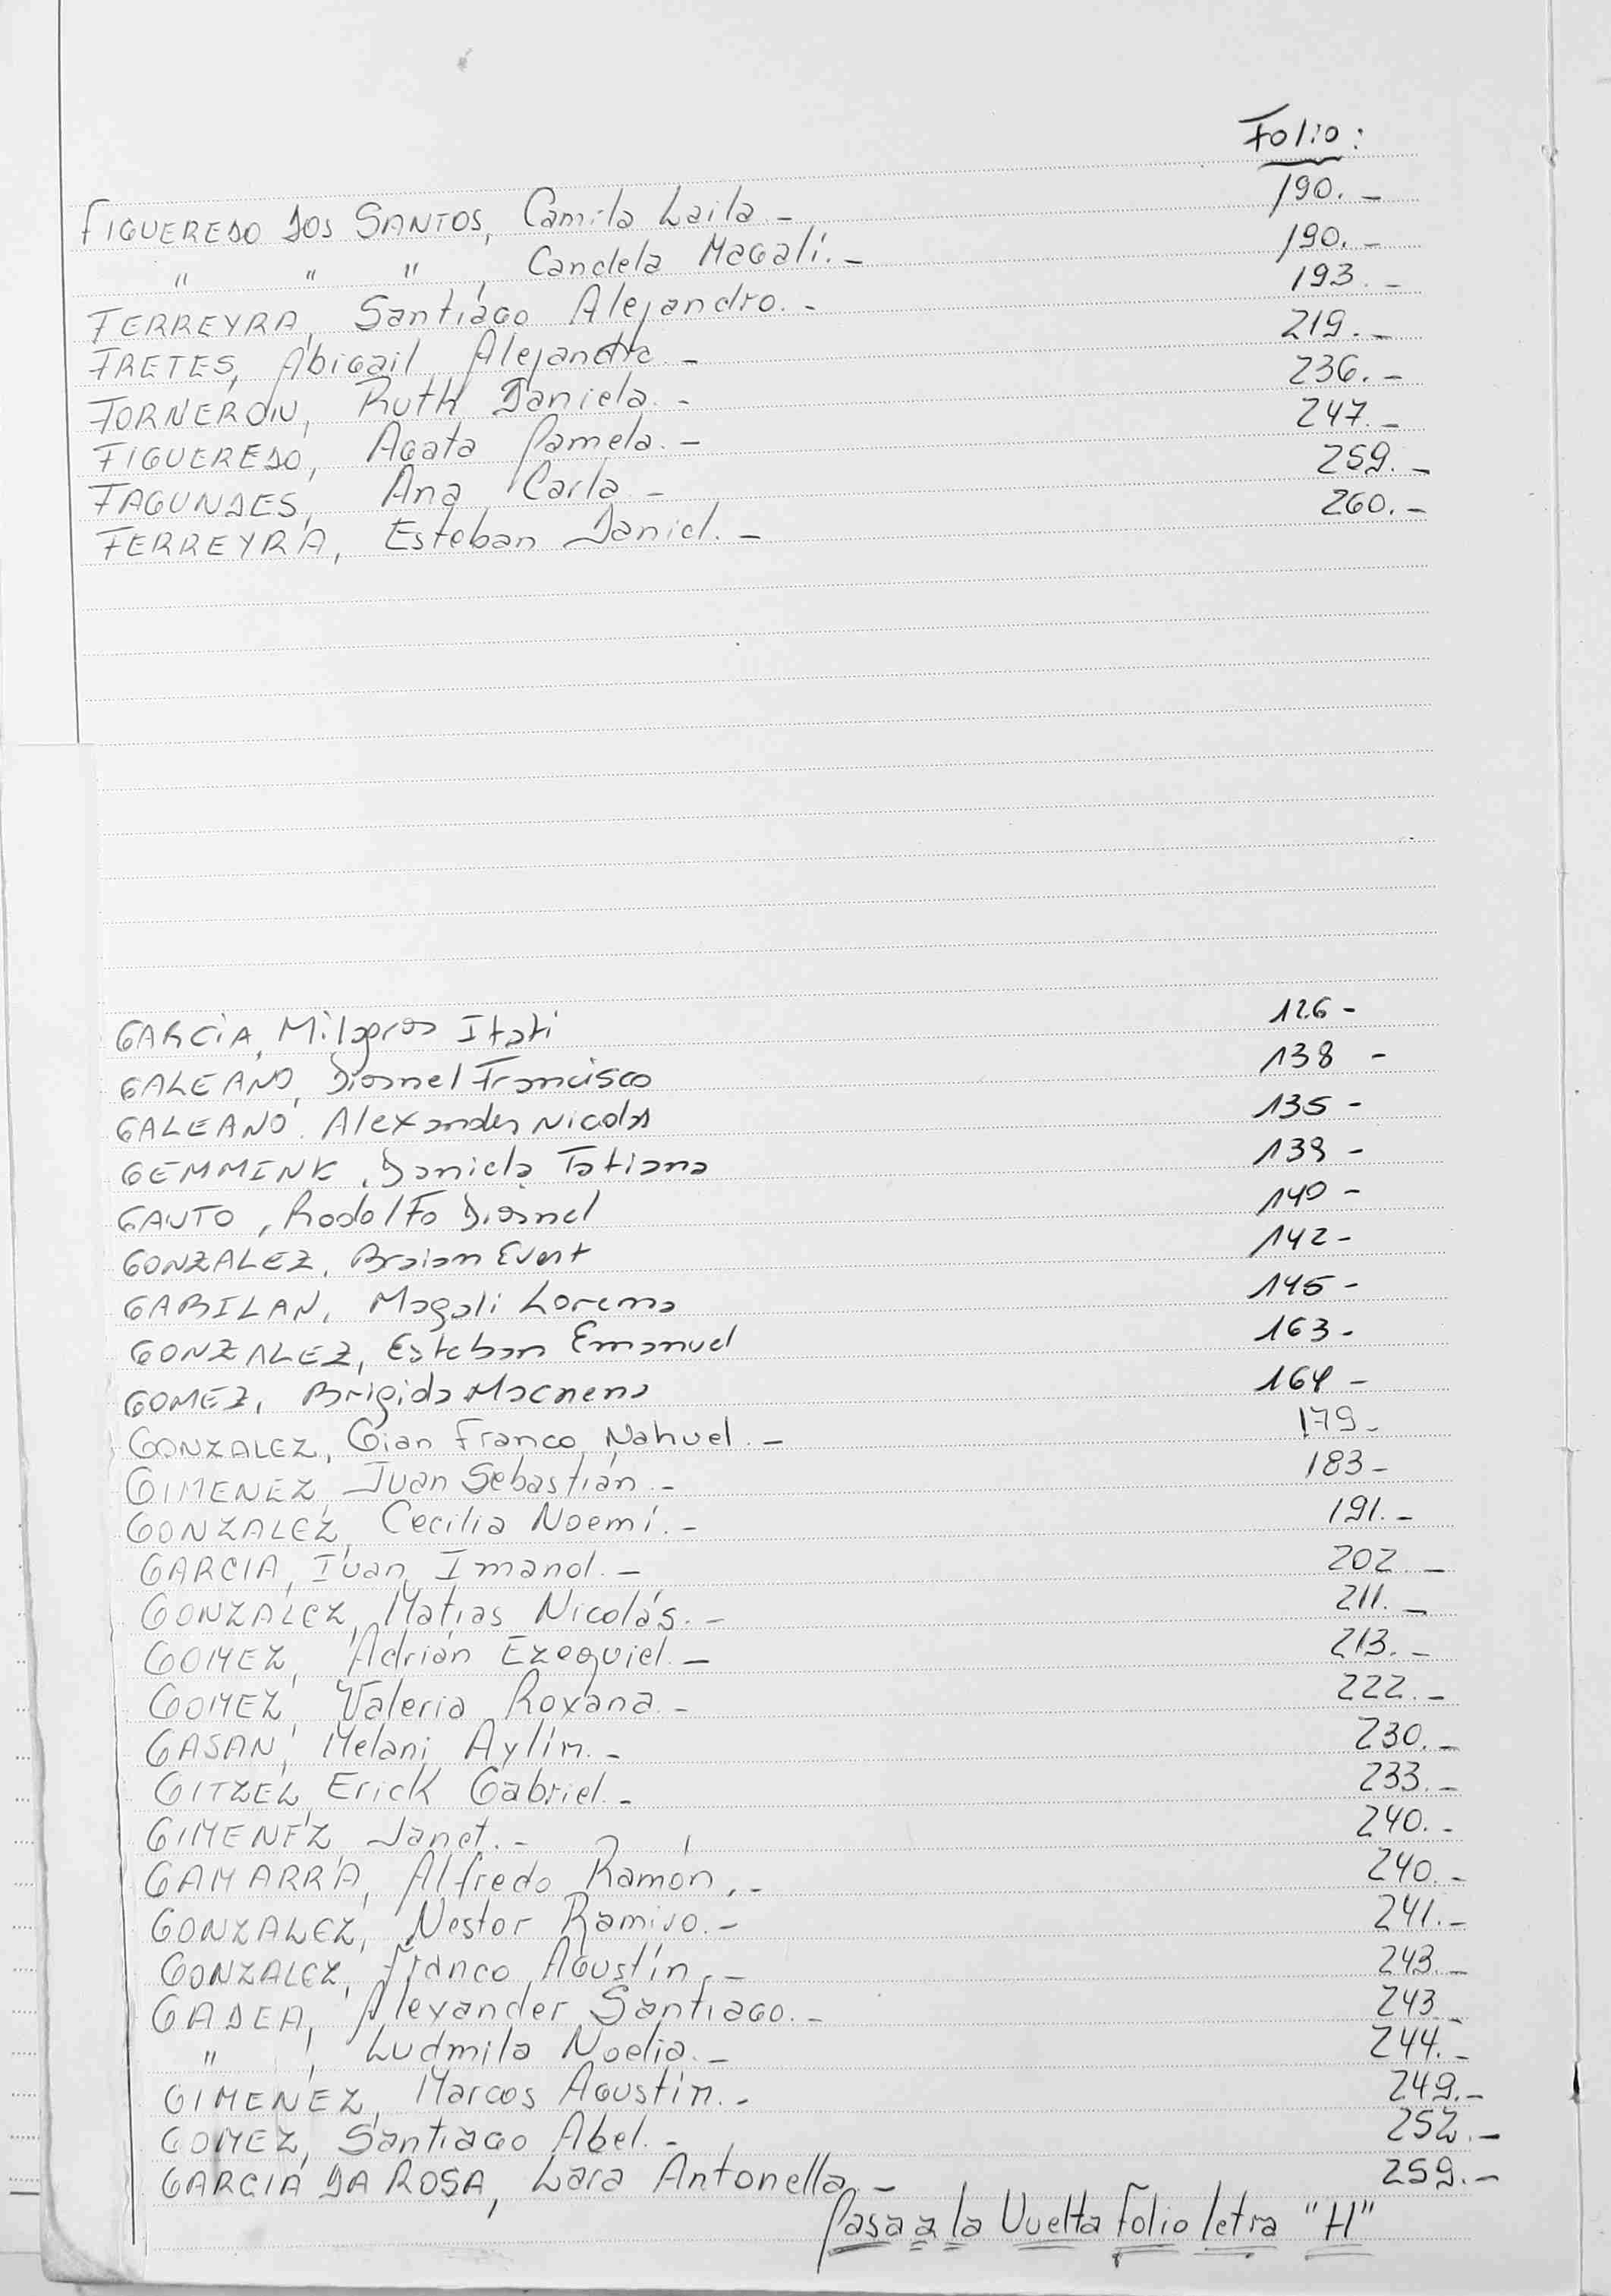 Folio:
FIGUEREDO DOS SANTOS, Camila Laila.- 190.-
" " " , Candela Magalí.- 190.-
FERREYRA, Santiago Alejandro.- 193.-
FRETES, Abigail Alejandra.- 219.-
FORNERON, Ruth Daniela.- 236.-
FIGUEREDO, Agata Pamela.- 247.-
FAGUNDES, Ana Carla.- 259.-
FERREYRA, Esteban Daniel.- 260.-
GARCIA, Milagros Itati 126-
GALEANO, Dionel Francisco 138 -
GALEANO. Alexander Nicolas 135 -
GEMMINK, Daniela Tatiana 139 -
GAUTO, Rodolfo Dionel 140 -
GONZALEZ, Braian Evert 142-
GABILAN, Magali Lorena 145-
GONZALEZ, Esteban Emanuel 163-
GOMEZ, Brigida Macnena 164 -
GONZALEZ, Gian Franco Nahuel.- 179-
GIMENEZ, Juan Sebastián.- 183-
GONZALEZ, Cecilia Noemí.- 191.-
GARCIA, Ivan Imanol.- 202.-
GONZALEZ, Matias Nicolás.- 211.-
GOMEZ, Adrián Ezequiel.- 213.-
GOMEZ, Valeria Roxana.- 222.-
GASAN, Melani Aylin.- 230.-
GITZEL, Erick Gabriel.- 233.-
GIMENEZ, Janet.- 240.-
GAMARRA, Alfredo Ramón.- 240.-
GONZALEZ, Nestor Ramiro.- 241.-
GONZALEZ, Franco Agustín.- 243.-
GADEA, Alexander Santiago.- 243
" , Ludmila Noelia.- 244.-
GIMENEZ, Marcos Agustín.- 249.-
GOMEZ, Santiago Abel.- 252.-
GARCIA DA ROSA, Lara Antonella.- 259.-
Pasa a la Vuelta Folio letra "H"